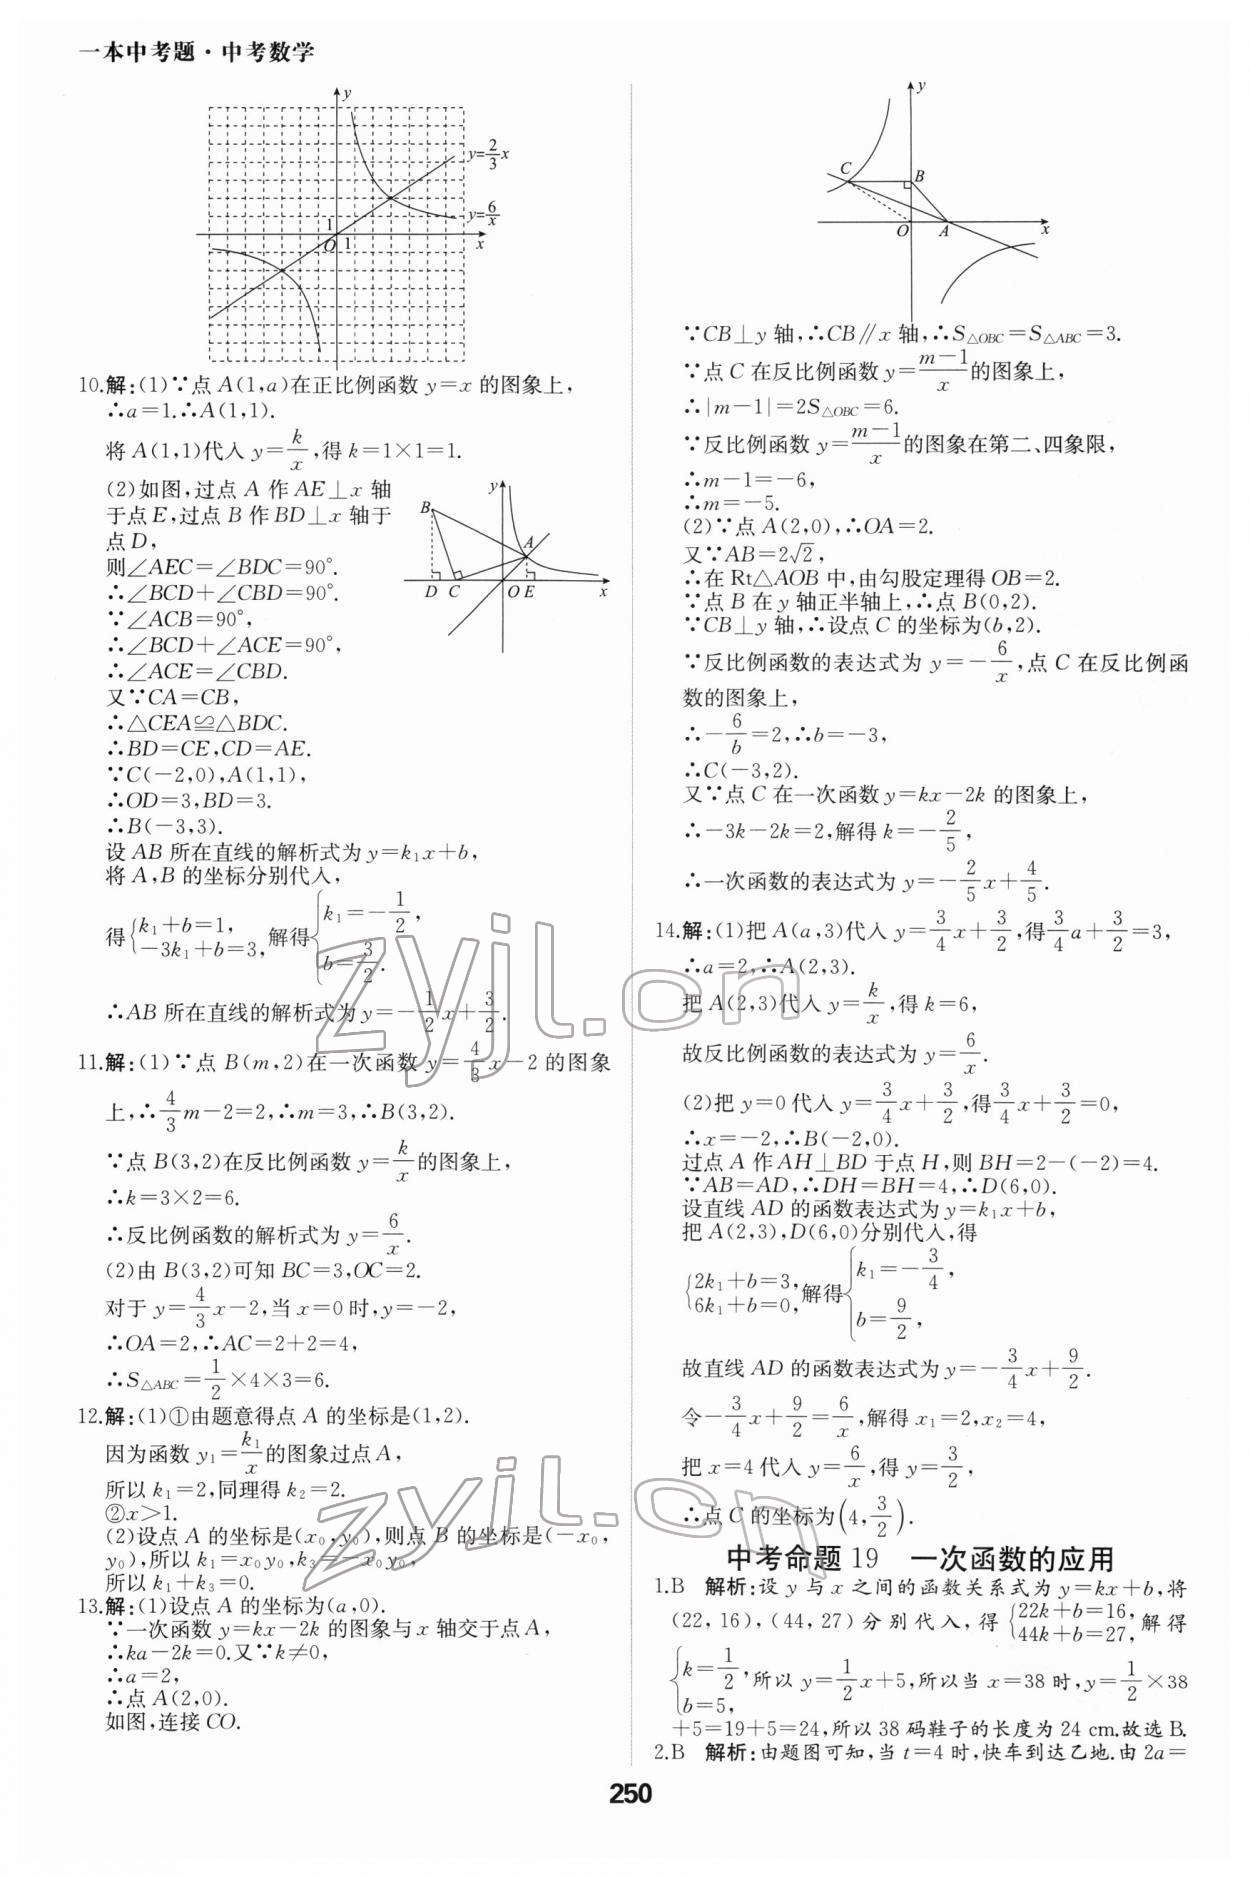 一本中考题·中考数学
y
y=2/3x
y=6/x
1
O 1 x
10.解:(1)∵点A(1,a)在正比例函数y=x的图象上,
∴a=1.∴A(1,1).
将A(1,1)代入y=k/x,得k=1×1=1.
(2)如图,过点A作AE⊥x轴
于点E,过点B作BD⊥x轴于
点D,
则∠AEC=∠BDC=90°.
∴∠BCD+∠CBD=90°.
∵∠ACB=90°,
∴∠BCD+∠ACE=90°,
∴∠ACE=∠CBD.
又∵CA=CB,
∴△CEA≌△BDC.
∴BD=CE,CD=AE.
∵C(-2,0),A(1,1),
∴OD=3,BD=3.
∴B(-3,3).
y
B
A
D C O E x
设AB所在直线的解析式为y=k₁x+b,
将A,B的坐标分别代入,
得{k₁+b=1, -3k₁+b=3, 解得{k₁=-1/2, b=3/2.
∴AB所在直线的解析式为y=-1/2x+3/2.
11.解:(1)∵点B(m,2)在一次函数y=4/3x-2的图象
上,∴4/3m-2=2,∴m=3,∴B(3,2).
∵点B(3,2)在反比例函数y=k/x的图象上,
∴k=3×2=6.
∴反比例函数的解析式为y=6/x.
(2)由B(3,2)可知BC=3,OC=2.
对于y=4/3x-2,当x=0时,y=-2,
∴OA=2,∴AC=2+2=4,
∴S△ABC=1/2×4×3=6.
12.解:(1)①由题意得点A的坐标是(1,2).
因为函数y₁=k₁/x的图象过点A,
所以k₁=2,同理得k₂=2.
②x>1.
(2)设点A的坐标是(x₀,y₀),则点B的坐标是(-x₀,
y₀),所以k₁=x₀y₀,k₃=-x₀y₀,
所以k₁+k₃=0.
13.解:(1)设点A的坐标为(a,0).
∵一次函数y=kx-2k的图象与x轴交于点A,
∴ka-2k=0.又∵k≠0,
∴a=2,
∴点A(2,0).
如图,连接CO.
y
C B
O A x
∵CB⊥y轴,∴CB∥x轴,∴S△OBC=S△ABC=3.
∵点C在反比例函数y=m-1/x的图象上,
∴|m-1|=2S△OBC=6.
∵反比例函数y=m-1/x的图象在第二、四象限,
∴m-1=-6,
∴m=-5.
(2)∵点A(2,0),∴OA=2.
又∵AB=2√2,
∴在Rt△AOB中,由勾股定理得OB=2.
∵点B在y轴正半轴上,∴点B(0,2).
∵CB⊥y轴,∴设点C的坐标为(b,2).
∵反比例函数的表达式为y=-6/x,点C在反比例函
数的图象上,
∴-6/b=2,∴b=-3,
∴C(-3,2).
又∵点C在一次函数y=kx-2k的图象上,
∴-3k-2k=2,解得k=-2/5,
∴一次函数的表达式为y=-2/5x+4/5.
14.解:(1)把A(a,3)代入y=3/4x+3/2,得3/4a+3/2=3,
∴a=2,∴A(2,3).
把A(2,3)代入y=k/x,得k=6,
故反比例函数的表达式为y=6/x.
(2)把y=0代入y=3/4x+3/2,得3/4x+3/2=0,
∴x=-2,∴B(-2,0).
过点A作AH⊥BD于点H,则BH=2-(-2)=4.
∵AB=AD,∴DH=BH=4,∴D(6,0).
设直线AD的函数表达式为y=k₁x+b,
把A(2,3),D(6,0)分别代入,得
{2k₁+b=3, 6k₁+b=0, 解得{k₁=-3/4, b=9/2,
故直线AD的函数表达式为y=-3/4x+9/2.
令-3/4x+9/2=6/x,解得x₁=2,x₂=4,
把x=4代入y=6/x,得y=3/2,
∴点C的坐标为(4,3/2).
中考命题19 一次函数的应用
1.B 解析:设y与x之间的函数关系式为y=kx+b,将
(22,16),(44,27)分别代入,得{22k+b=16, 44k+b=27, 解得
{k=1/2, b=5, 所以y=1/2x+5,所以当x=38时,y=1/2×38
+5=19+5=24,所以38码鞋子的长度为24 cm.故选B.
2.B 解析:由题图可知,当t=4时,快车到达乙地.由2a=
250
zyjl.cn
zyjl.cn